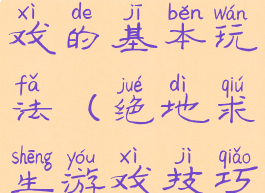 xì de jī běn wán
戏的基本玩
fǎ jué dì qiú
法（绝地求
shēng yóu xì jì qiǎo
生游戏技巧